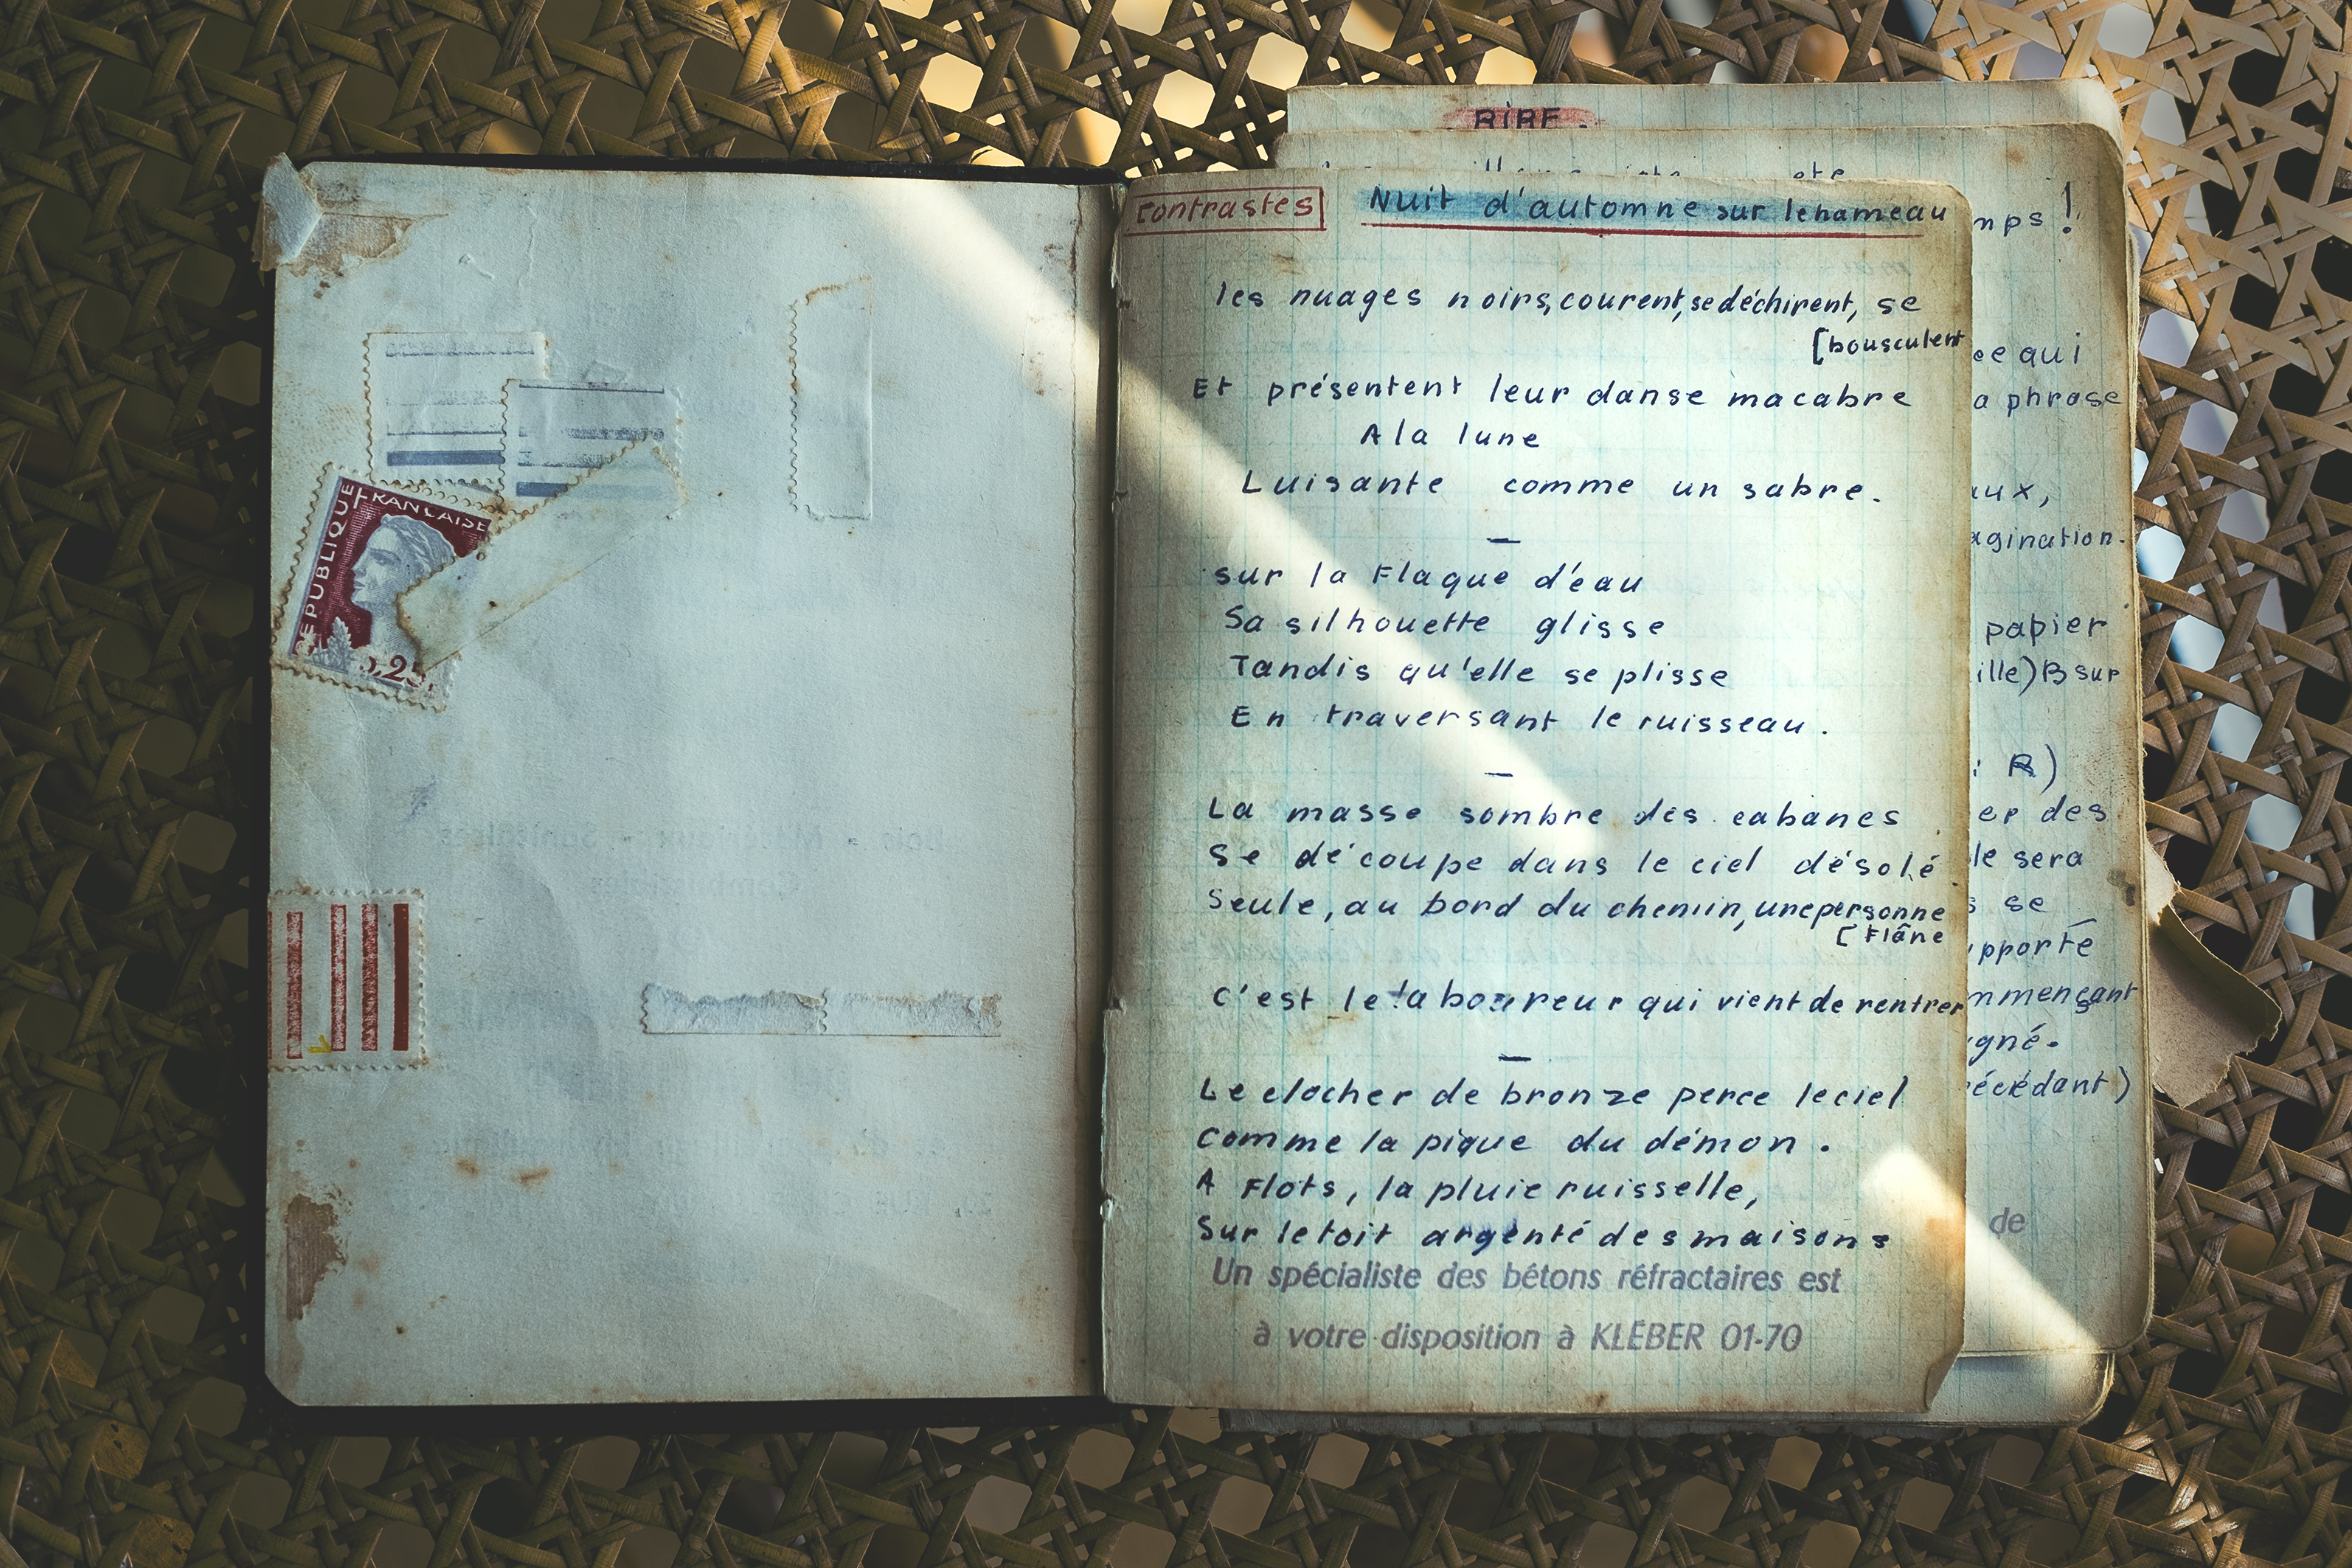 RÉPUBLIQUE FRANÇAISE
0,25
RIRE.
contrastes Nuit d'automne sur le hameau
les nuages noirs, courent, se déchirent, se
[bousculent
Et présentent leur danse macabre
A la lune
Luisante comme un sabre.
—
sur la Flaque d'eau
Sa silhouette glisse
Tandis qu'elle se plisse
En traversant le ruisseau.
—
La masse sombre des cabanes
Se découpe dans le ciel désolé
Seule, au bord du chemin, une personne
[Flâne
C'est le laboureur qui vient de rentrer
—
Le clocher de bronze perce le ciel
Comme la pique du démon.
A Flots, la pluie ruisselle,
Sur le toit argenté des maisons
Un spécialiste des bétons réfractaires est
à votre disposition à KLÉBER 01-70
mps !
ee qui
a phrase
aux,
agination.
papier
ille) B sur
: R)
er des
le sera
se
pporté
mmençant
gné.
écédant)
de